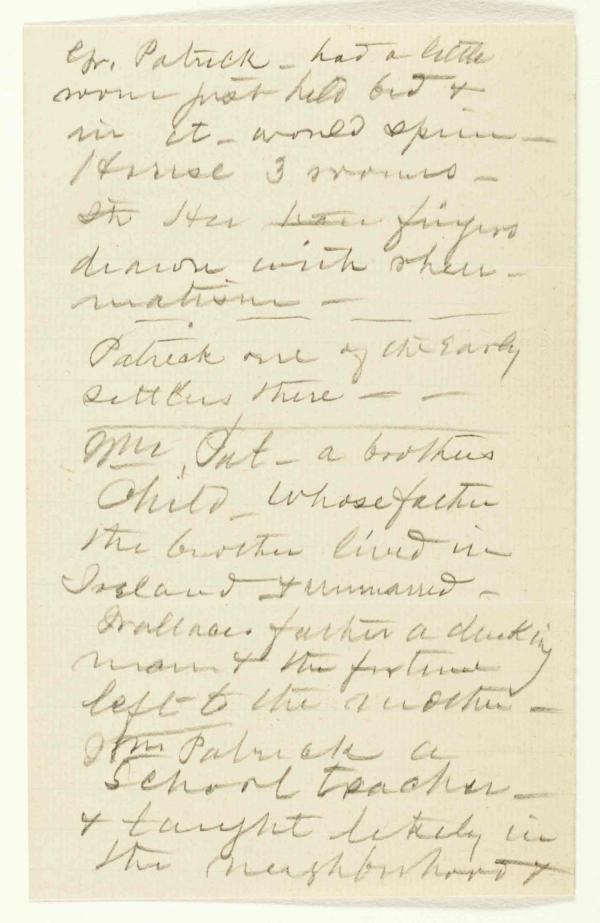 Gr. Patrick - had a little
room just held bed &
in it - would spin -
House 3 rooms -
Her fingers
drawn with rheu-
matism -
Patrick one of the Early
settlers there - -
Wm Pat - a brothers
Child - whose father
the brother lived in
Ireland & unmarried -
Wallace. father a drinking
man & the fortune
left to the mother -
Wm Patrick a
School teacher -
& taught likely in
the neighborhood &